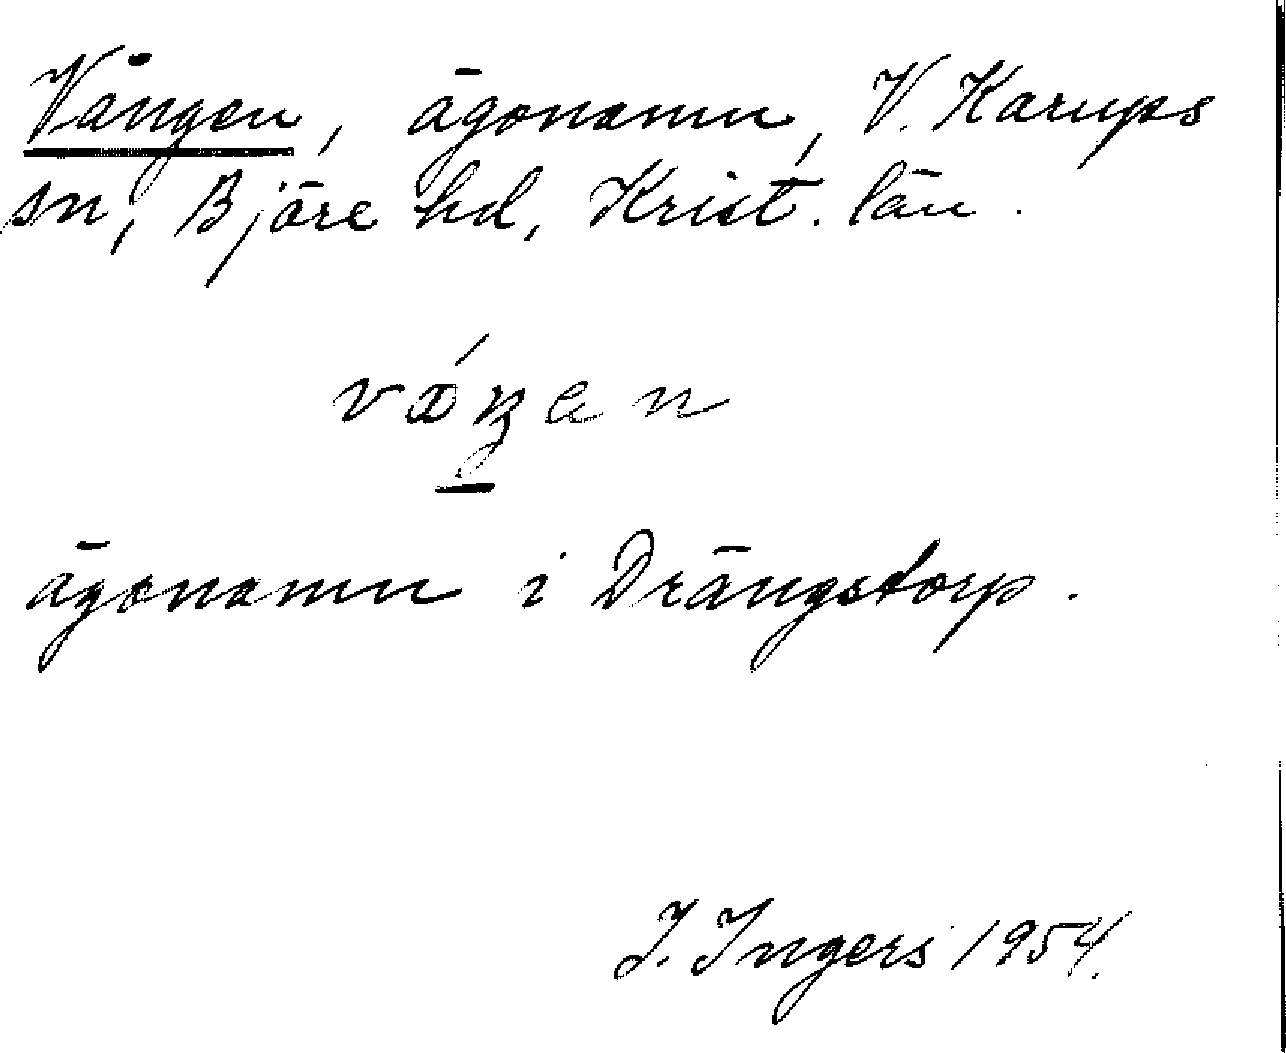 Vången, ägonamn, V. Karups
sn, Bjäre hd, Krist. län.
ägonamn i Drängstorp.
I. Ingers 1954.